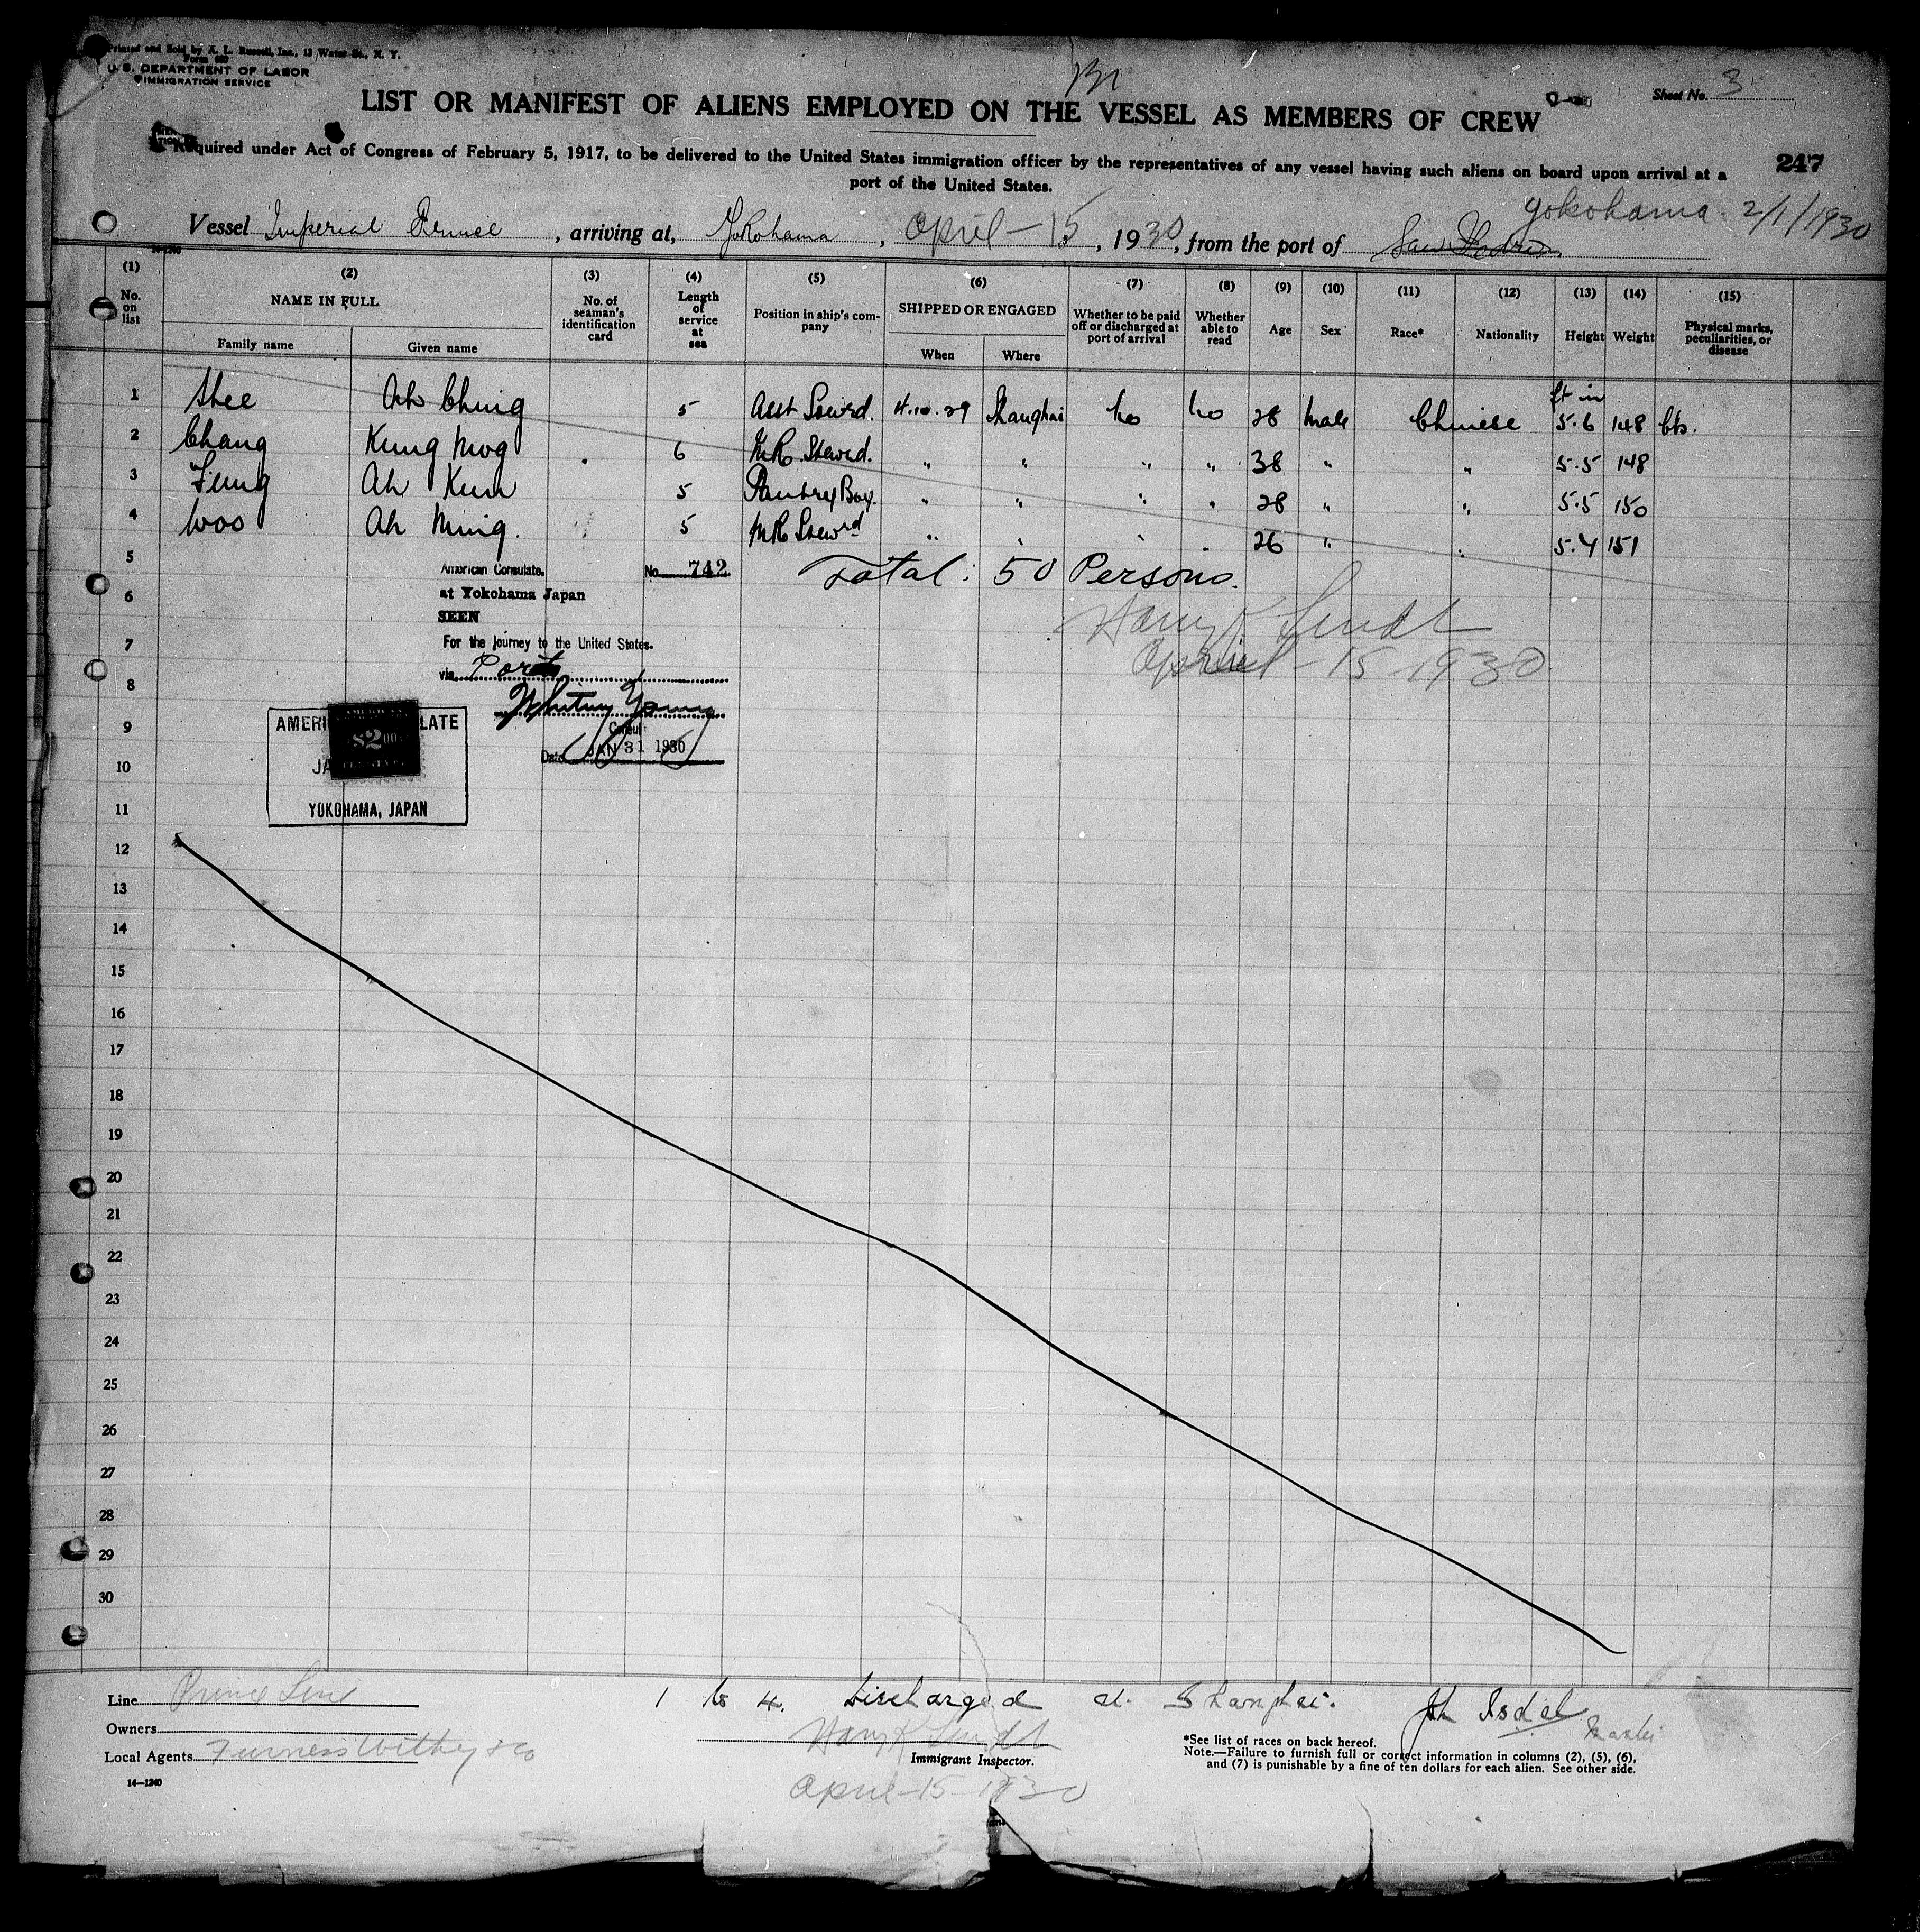 Printed and Sold by A. L. Russell, Inc., 13 Water St., N. Y.
Form 680
U. S. DEPARTMENT OF LABOR
IMMIGRATION SERVICE
Sheet No. 3
LIST OR MANIFEST OF ALIENS EMPLOYED ON THE VESSEL AS MEMBERS OF CREW
Required under Act of Congress of February 5, 1917, to be delivered to the United States immigration officer by the representatives of any vessel having such aliens on board upon arrival at a
port of the United States.
247
Yokohama 2/1/1930
Vessel Imperial Prince, arriving at, Yokohama, April - 15, 1930, from the port of San Pedro
14-1240
(1) (2) (3) (4) (5) (6) (7) (8) (9) (10) (11) (12) (13) (14) (15)
No. on list NAME IN FULL No. of seaman's identification card Length of service at sea Position in ship's company SHIPPED OR ENGAGED Whether to be paid off or discharged at port of arrival Whether able to read Age Sex Race* Nationality Height Weight Physical marks, peculiarities, or disease
Family name Given name When Where
ft in
1 Shee Ah Ching 5 Asst Steward. 4.10.29 Shanghai no no 28 male Chinese 5.6 148 lbs.
2 Chang Kung Mog 6 M.R. Steward. " " " " 38 " " 5.5 148
3 Fung Ah Kun 5 Pantry Boy. " " " " 28 " " 5.5 150
4 Woo Ah Ming. 5 M.R. Steward " " " " 26 " " 5.4 151
5 Total: 50 Persons.
American Consulate. No. 742
6 at Yokohama Japan
SEEN
Harry K
7 For the journey to the United States.
April - 15 1930
via Ports
8
Whitney Young
9 AMERICAN CONSULATE
$2.00
Consul
Date JAN 31 1930
10
11 YOKOHAMA, JAPAN
12
13
14
15
16
17
18
19
20
21
22
23
24
25
26
27
28
29
30
Line Prince Line
1 to 4. Discharged at Shanghai.
Owners
Harry K
Local Agents Furness Withy & Co
Immigrant Inspector.
April - 15 - 1930
*See list of races on back hereof.
Note.—Failure to furnish full or correct information in columns (2), (5), (6),
and (7) is punishable by a fine of ten dollars for each alien. See other side.
14—1240